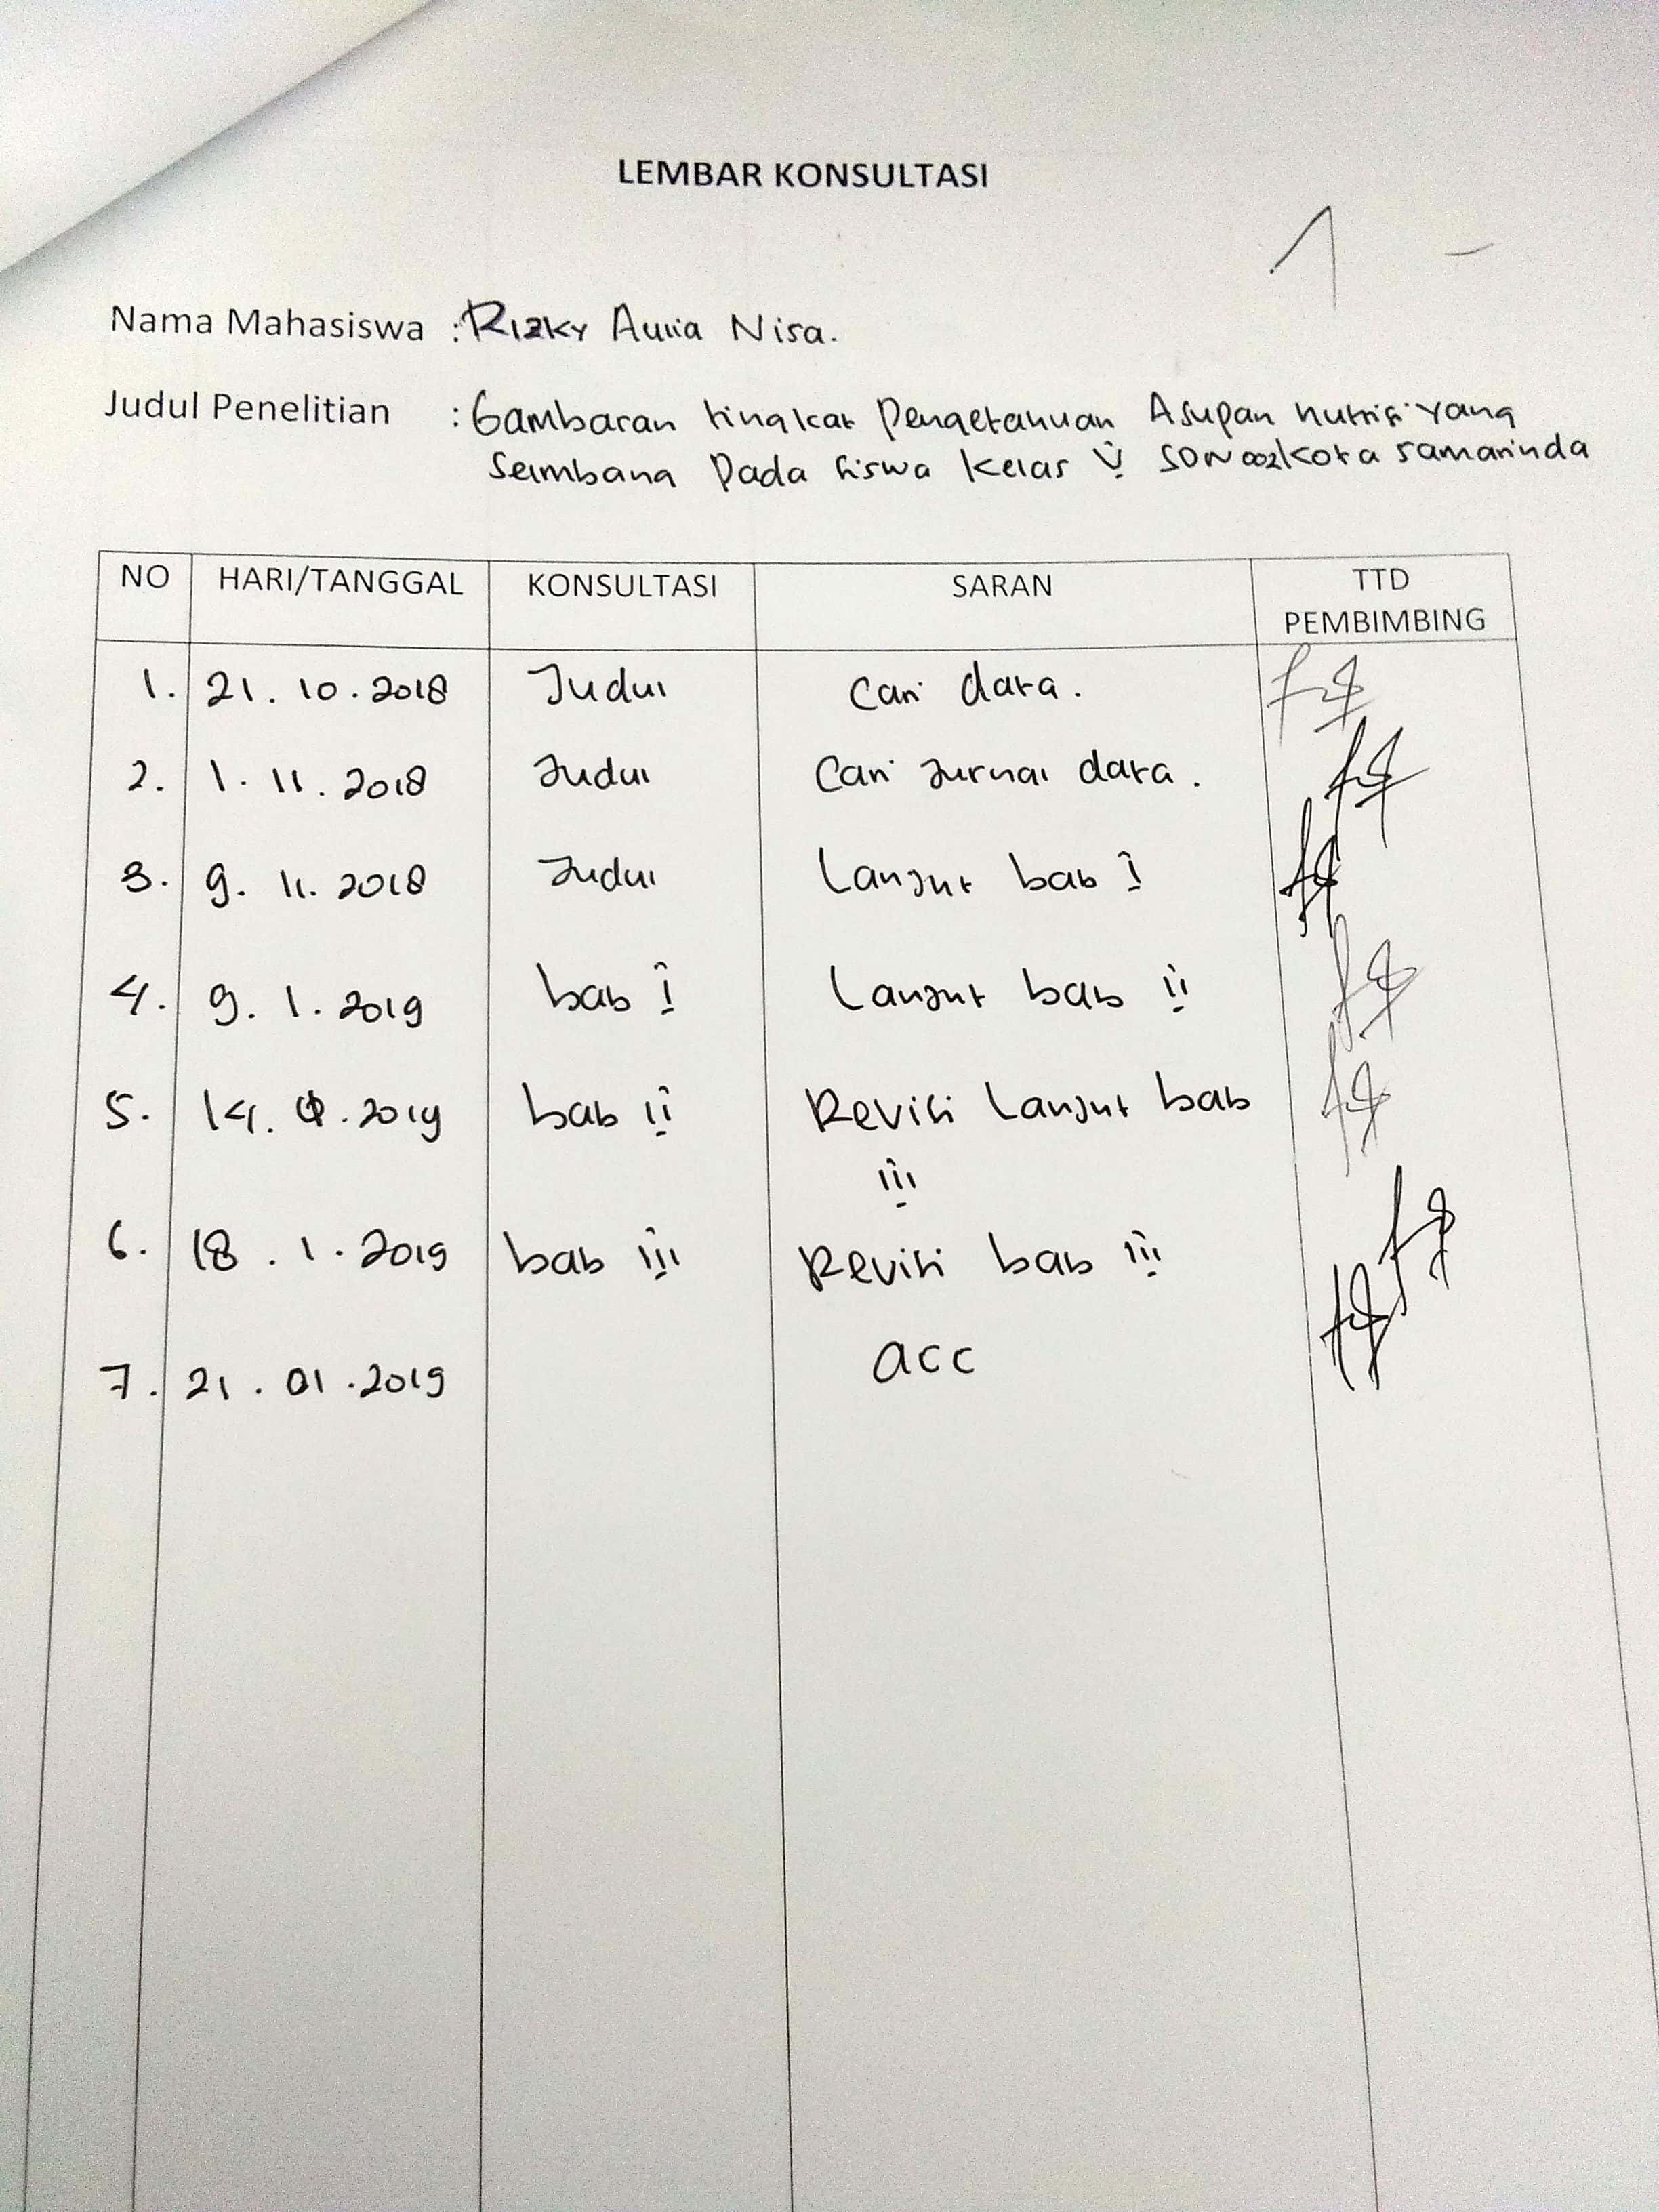 LEMBAR KONSULTASI
1 -
Nama Mahasiswa : Rizky Aulia Nisa.
Judul Penelitian : Gambaran tingkat Pengetahuan Asupan nutrisi yang
Seimbang Pada siswa Kelas V SDN 002 Kota Samarinda
NO HARI/TANGGAL KONSULTASI SARAN TTD PEMBIMBING
1. 21. 10. 2018 Judul Cari data.
2. 1. 11. 2018 Judul Cari Jurnal data.
3. 9. 11. 2018 Judul Lanjut bab I
4. 9. 1. 2019 bab I Lanjut bab II
5. 14. 2019 bab II Revisi Lanjut bab
III
6. 18. 1. 2019 bab III Revisi bab III
7. 21. 01. 2019 acc